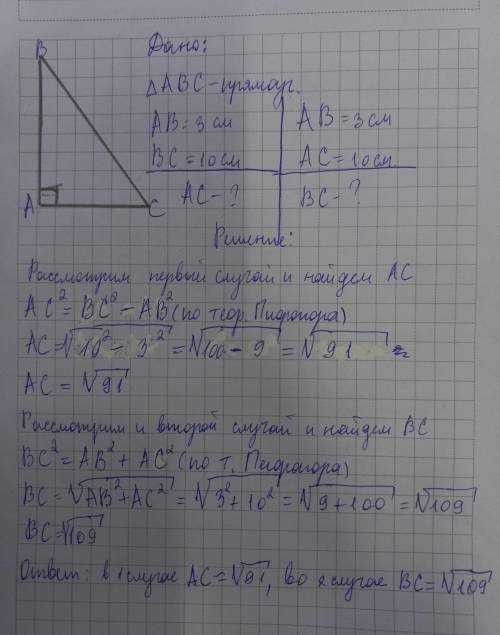 B
Дано:
△ABC - прямоуг.
AB = 3 см
BC = 10 см
AC - ?
AB = 3 см
AC = 10 см
BC - ?
A
C
Решение:
Рассмотрим первый случай и найдем AC
AC² = BC² - AB² (по теор. Пифагора)
AC = √10² - 3² = √100 - 9 = √91
AC = √91
Рассмотрим и второй случай и найдем BC
BC² = AB² + AC² (по т. Пифагора)
BC = √AB² + AC² = √3² + 10² = √9 + 100 = √109
BC = √109
Ответ: в 1 случае AC = √91, во 2 случае BC = √109